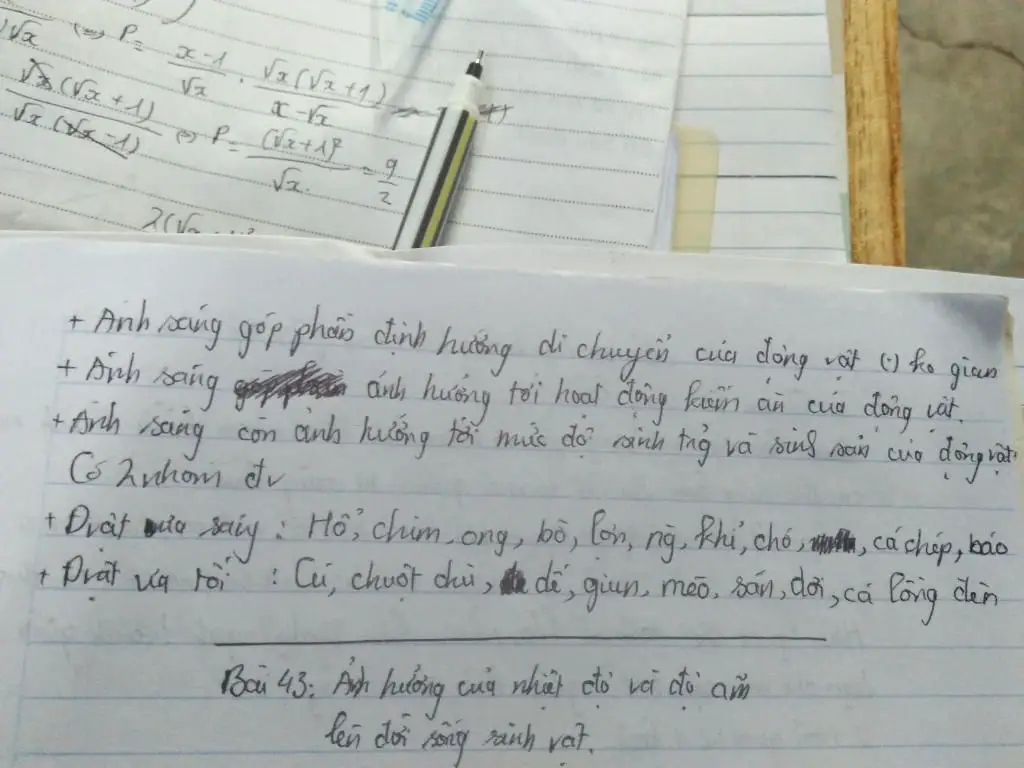 )√x (=) P = x-1/√x . √x(√x+1)/x-√x
√x(√x+1)/√x(√x-1) (=) P = (√x+1)²/√x = 9/2
+ Ánh sáng góp phần định hướng di chuyển của động vật (·) ko gian
+ Ánh sáng ảnh hưởng tới hoạt động kiếm ăn của động vật.
+ Ánh sáng còn ảnh hưởng tới mức độ sinh trg và sinh sản của động vật
Có 2 nhóm đv
+ Đvật ưa sáng : Hổ, chim, ong, bò, lợn, ng, khỉ, chó, cá chép, báo
+ Đvật ưa tối : Cú, chuột chũi, dế, giun, mèo, sán, dơi, cá lồng đèn
Bài 43: Ảnh hưởng của nhiệt độ và độ ẩm
lên đời sống sinh vật.